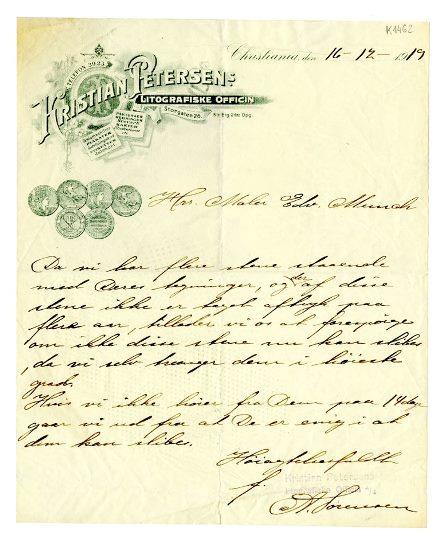 K1462
Christiania, den 16-12-1919
TELEFON 3923
KRISTIAN PETERSENS
LITOGRAFISKE OFFICIN
Storgaten 26.
Hrr. Maler Edv. Munch
Da vi har flere stene staaende
med Deres tegninger, og der af disse
stene ikke er taget aftryk paa
flere aar, tillader vi os at forespörge
om ikke disse stene nu kan slibes
, da vi selv trænger dem i høieste
grad.
Hvis vi ikke hører fra Dem paa 14 dage
gaar vi ud fra at De er enig i at
dem kan slibes.
Høiagtelsesfuldt
Kristian Petersens
f.
A. Sørensen